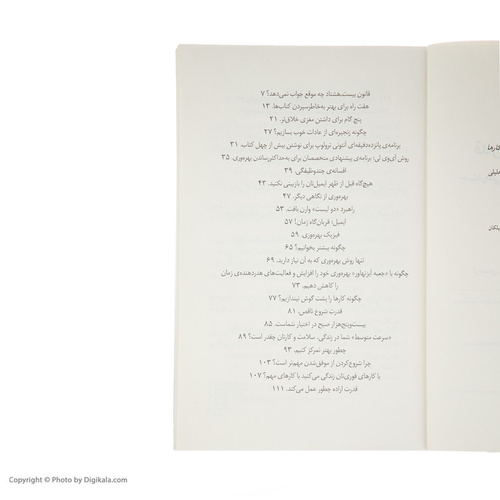 قانون بیست‌ـ‌هشتاد چه موقع جواب نمی‌دهد؟ ۷
هفت راه برای بهتر به‌خاطرسپردن کتاب‌ها. ۱۳
پنج گام برای داشتن مغزی خلاق‌تر. ۲۱
چگونه زنجیره‌ای از عادات خوب بسازیم؟ ۲۷
برنامه‌ی پانزده‌دقیقه‌ای آنتونی ترولوپ برای نوشتن بیش از چهل کتاب. ۳۱
روش آی‌وی لی: برنامه‌ی پیشنهادی متخصصان برای به‌حداکثررساندن بهره‌وری. ۳۵
افسانه‌ی چندوظیفگی. ۳۹
هیچ‌گاه قبل از ظهر ایمیل‌تان را بازبینی نکنید. ۴۳
بهره‌وری از نگاهی دیگر. ۴۷
راهبرد «دو لیست» وارن بافت. ۵۳
ایمیل: قربان‌گاه زمان! ۵۷
فیزیک بهره‌وری. ۵۹
چگونه بیشتر بخوانیم؟ ۶۵
تنها روش بهره‌وری که به آن نیاز دارید. ۶۹
چگونه با «جعبه آیزنهاور» بهره‌وری خود را افزایش و فعالیت‌های هدردهنده‌ی زمان
را کاهش دهیم. ۷۳
چگونه کارها را پشت گوش نیندازیم؟ ۷۷
قدرت شروع ناقص. ۸۱
بیست‌وپنج‌هزار صبح در اختیار شماست. ۸۵
«سرعت متوسط» شما در زندگی، سلامت و کارتان چقدر است؟ ۸۹
چطور بهتر تمرکز کنیم. ۹۳
چرا شروع‌کردن از موفق‌شدن مهم‌تر است؟ ۱۰۳
با کارهای فوری‌تان زندگی می‌کنید یا کارهای مهم؟ ۱۰۷
قدرت اراده چطور عمل می‌کند. ۱۱۱
Copyright © Photo by Digikala.com